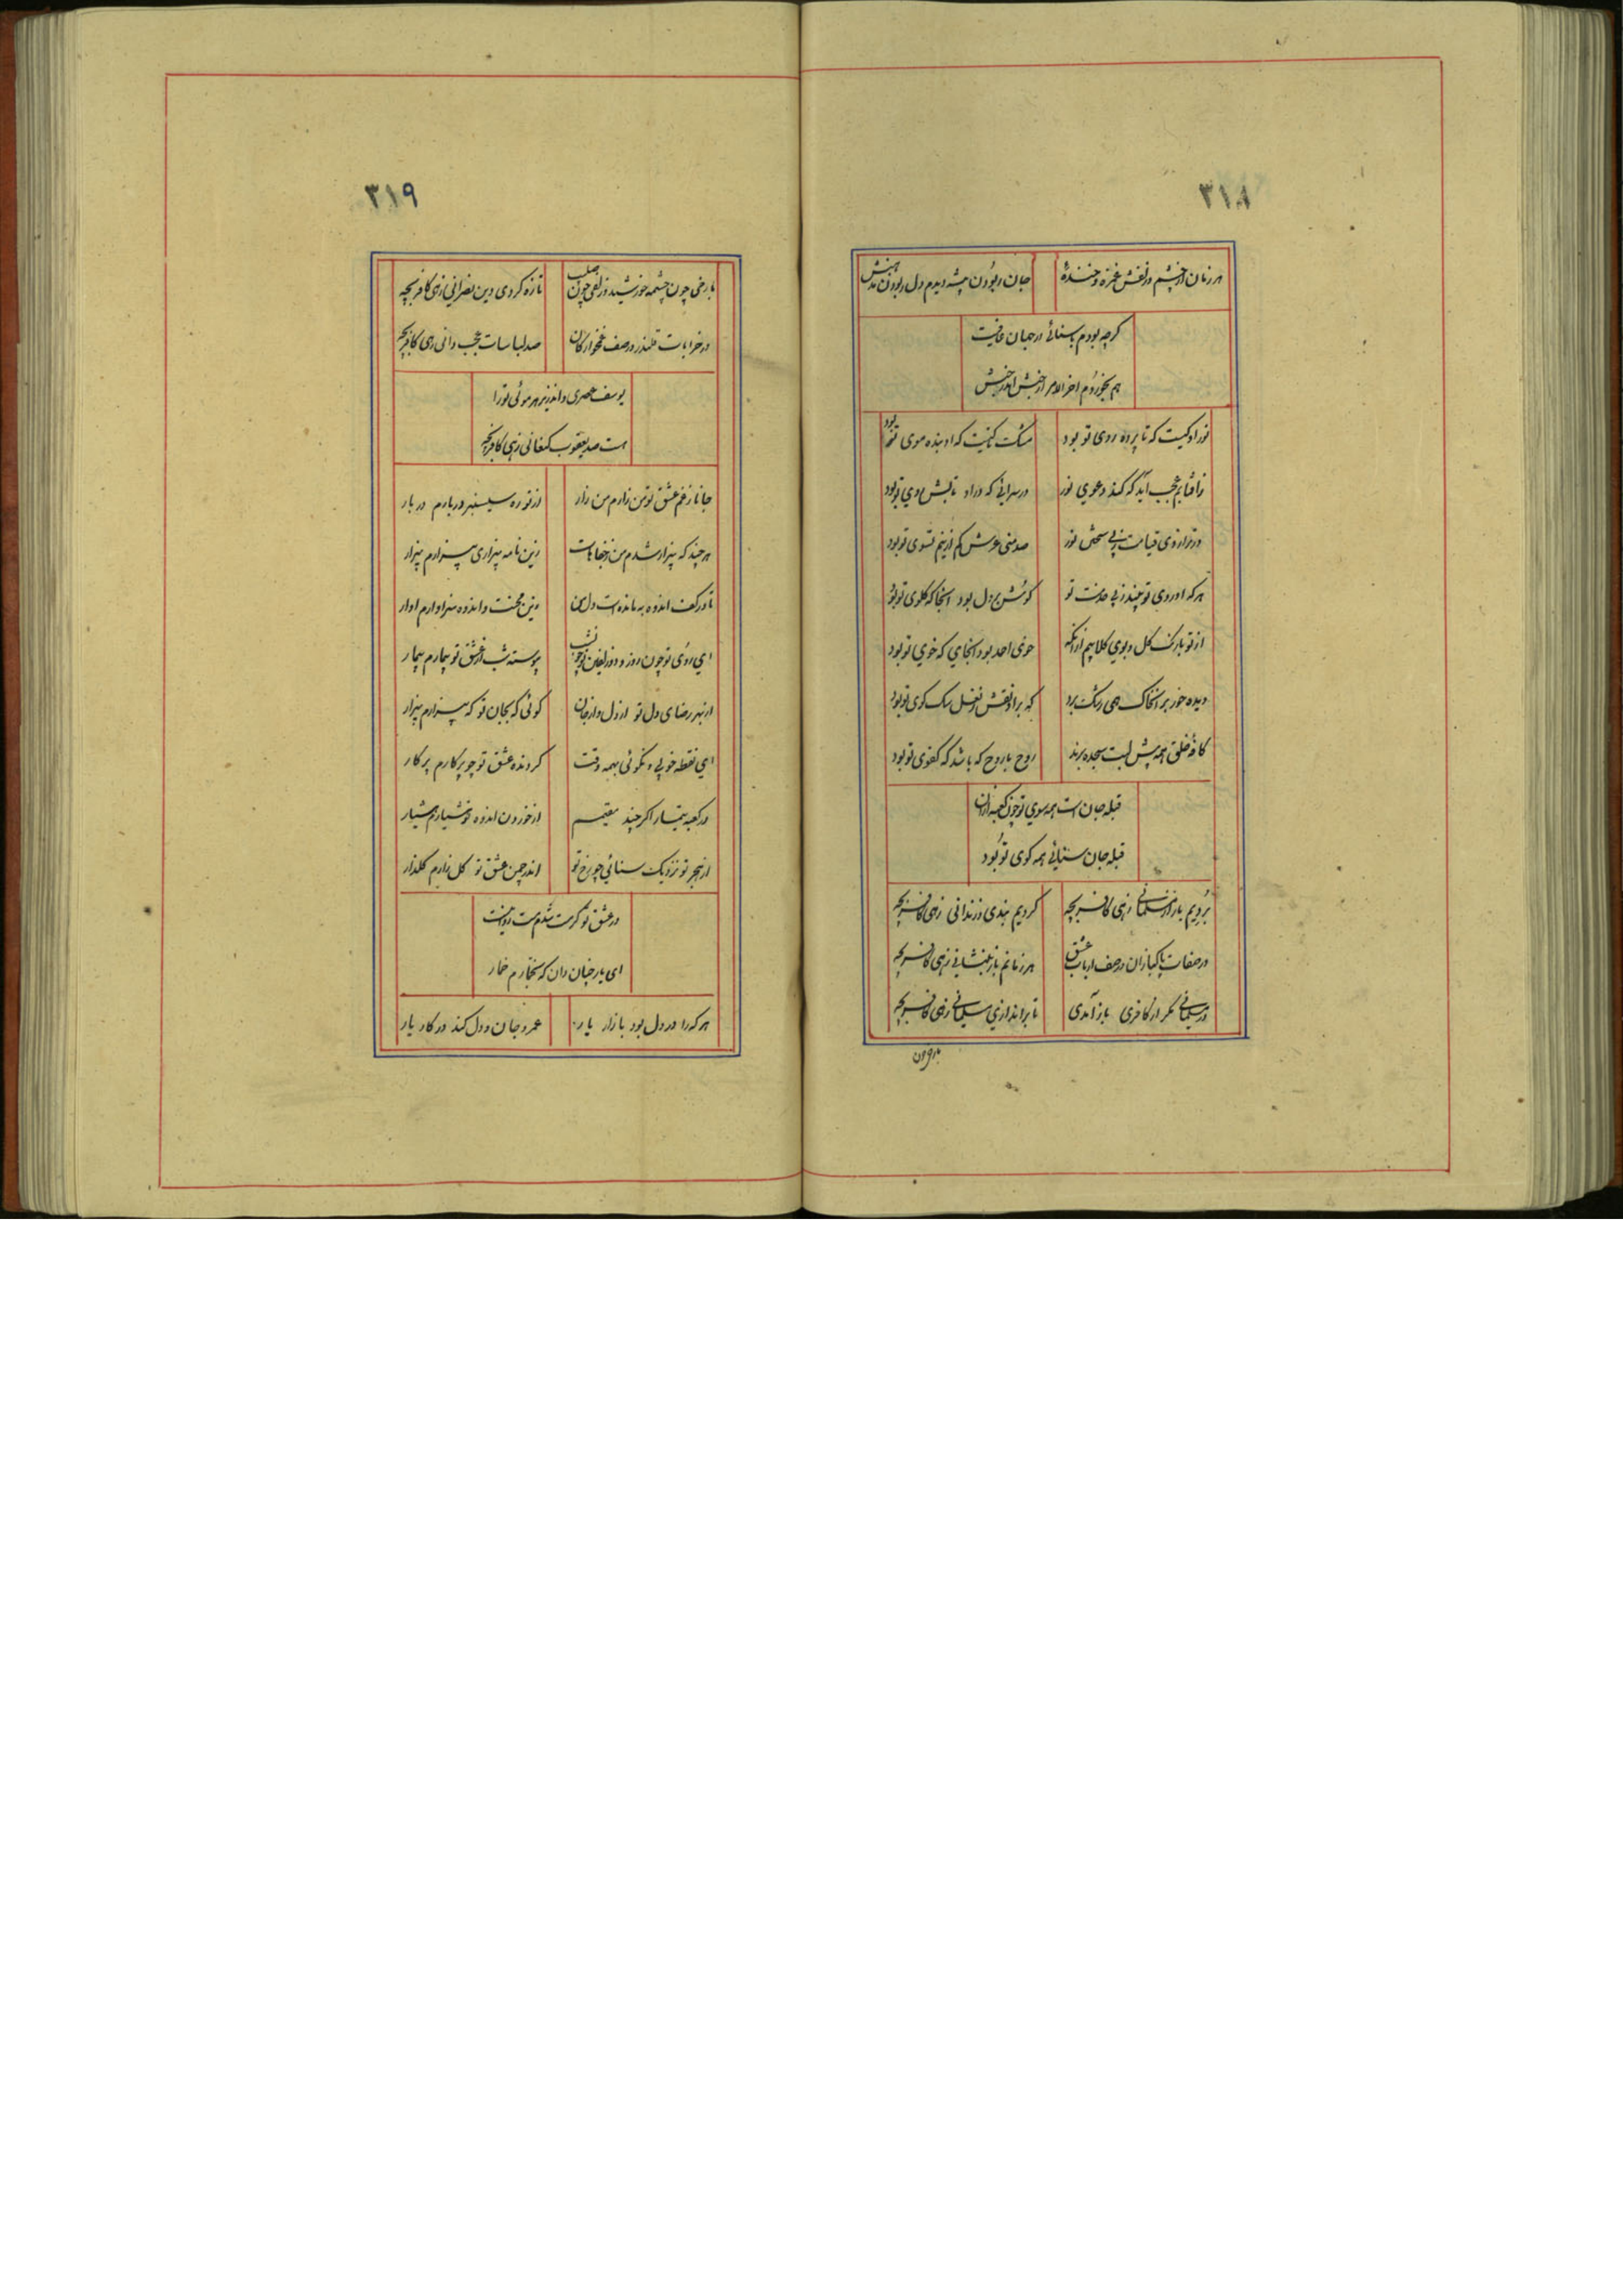 ۳۱۸
هر زمان از چشم و زلفش غمزه و خنده جان ربودن پیشه دیدم دل ربودن مذهبش
کرچه بودم باسنائی در جهان عافیت
هم بخوردم اخر الامر از جنبش اندر جنبش
نور او کیست که تا پرده روی تو بود مشک کیست که او بنده موی تو بود
ز آفتابم عجب آید که کند دعوی نور در سرائی که در او تابش روی تو بود
در ترازوی قیامت ز پی سختن نور صد منی عرش کم از نیم تسوی تو بود
هرکه او روی تو بیند ز پی خدمت تو کوشش بر دل بود آنجا که کلوی تو بود
از تو با رنک کل و بوی کلابیم از آنکه خوی احمد بود آنجای که خوی تو بود
دیده حور بر آن خاک همی رشک برد که بر او نقش نعل سک کوی تو بود
کافه خلق همه پیش لبت سجده برند روح با روح که باشد که کفوی تو بود
قبله جان است همه سوی تو چون کعبه از آن
قبله جان سنائی همه کوی تو بود
بردیم باز از مسلمانی زهی کافر بچه کردیم بندی و زندانی زهی کافر بچه
در صفات پاکبازان در صف ارباب عشق هر زمانم باز بنشانی زهی کافر بچه
در مسلمانی مکر از کافری باز آمدی تا براندازی مسلمانی زهی کافر بچه
با رخ چون
۳۱۹
با رخی چون چشمه خورشید و زلفی چون صلیب تازه کردی دین نصرانی زهی کافر بچه
در خرابات قلندر در صف غمخوارکان صد لباسات عجب دانی زهی کافر بچه
یوسف عصری و اندر زیر هر موئی تو را
هست صد یعقوب کنعانی زهی کافر بچه
جانا ز غم عشق تو من زارم من زار از تو ره سیسنبر دربارم دربار
هرچند که بیزار شدم من ز جفاهات زین نامه بیزاری بیزارم بیزار
تا در کف اندوه بمانده است دل من زین محنت و اندوه سزاوارم اوار
ای روی تو چون روز و دو زلفین تو چون شب پیوسته شب از عشق تو بیمارم بیمار
از بهر رضای دل تو از دل و از جان کوئی که بجان تو که بیزارم بیزار
ای نقطه خوبی و نکوئی بهمه وقت کردنده عشق تو چو پرکارم پرکار
در کعبه تیمار اکر چند مقیم از خوردن اندوه تو هشیارم هشیار
از هجر تو نزدیک سنائی چو رخ تو اندر چمن عشق تو کل زارم کلذار
در عشق تو کر مست شدم
ای یار چنان دان که خمارم خمار
هرکه را در دل بود بازار یار عمر و جان و دل کند در کار یار